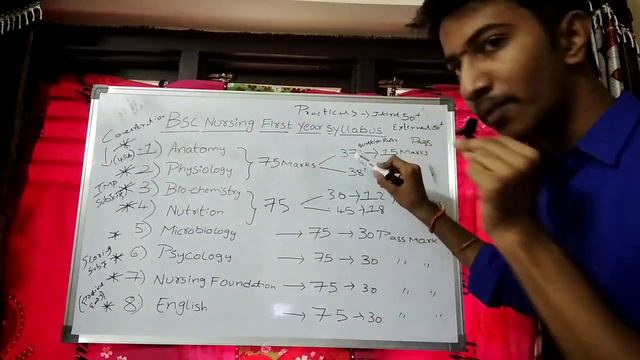 Practical → Internal 50+
BSC Nursing First Year Syllabus External 50+
Pass
* 1) Anatomy 75 Marks 37 → 15 Marks
* 2) Physiology 38
IMP
* 3) Bio-chemistry 75 30 → 12
* 4) Nutrition 45 → 18
* 5) Microbiology → 75 → 30 Pass Mark
* 6) Psycology → 75 → 30 " "
* 7) Nursing Foundation → 75 → 30 " "
* 8) English → 75 → 30 " "